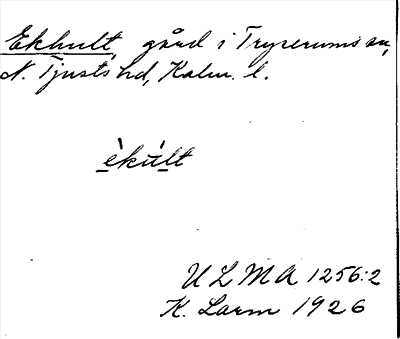 Ekhult, gård i Tryserums sn,
N. Tjusts hd, Kalm. l.
èkúlt
ULMA 1256:2
K. Larm 1926